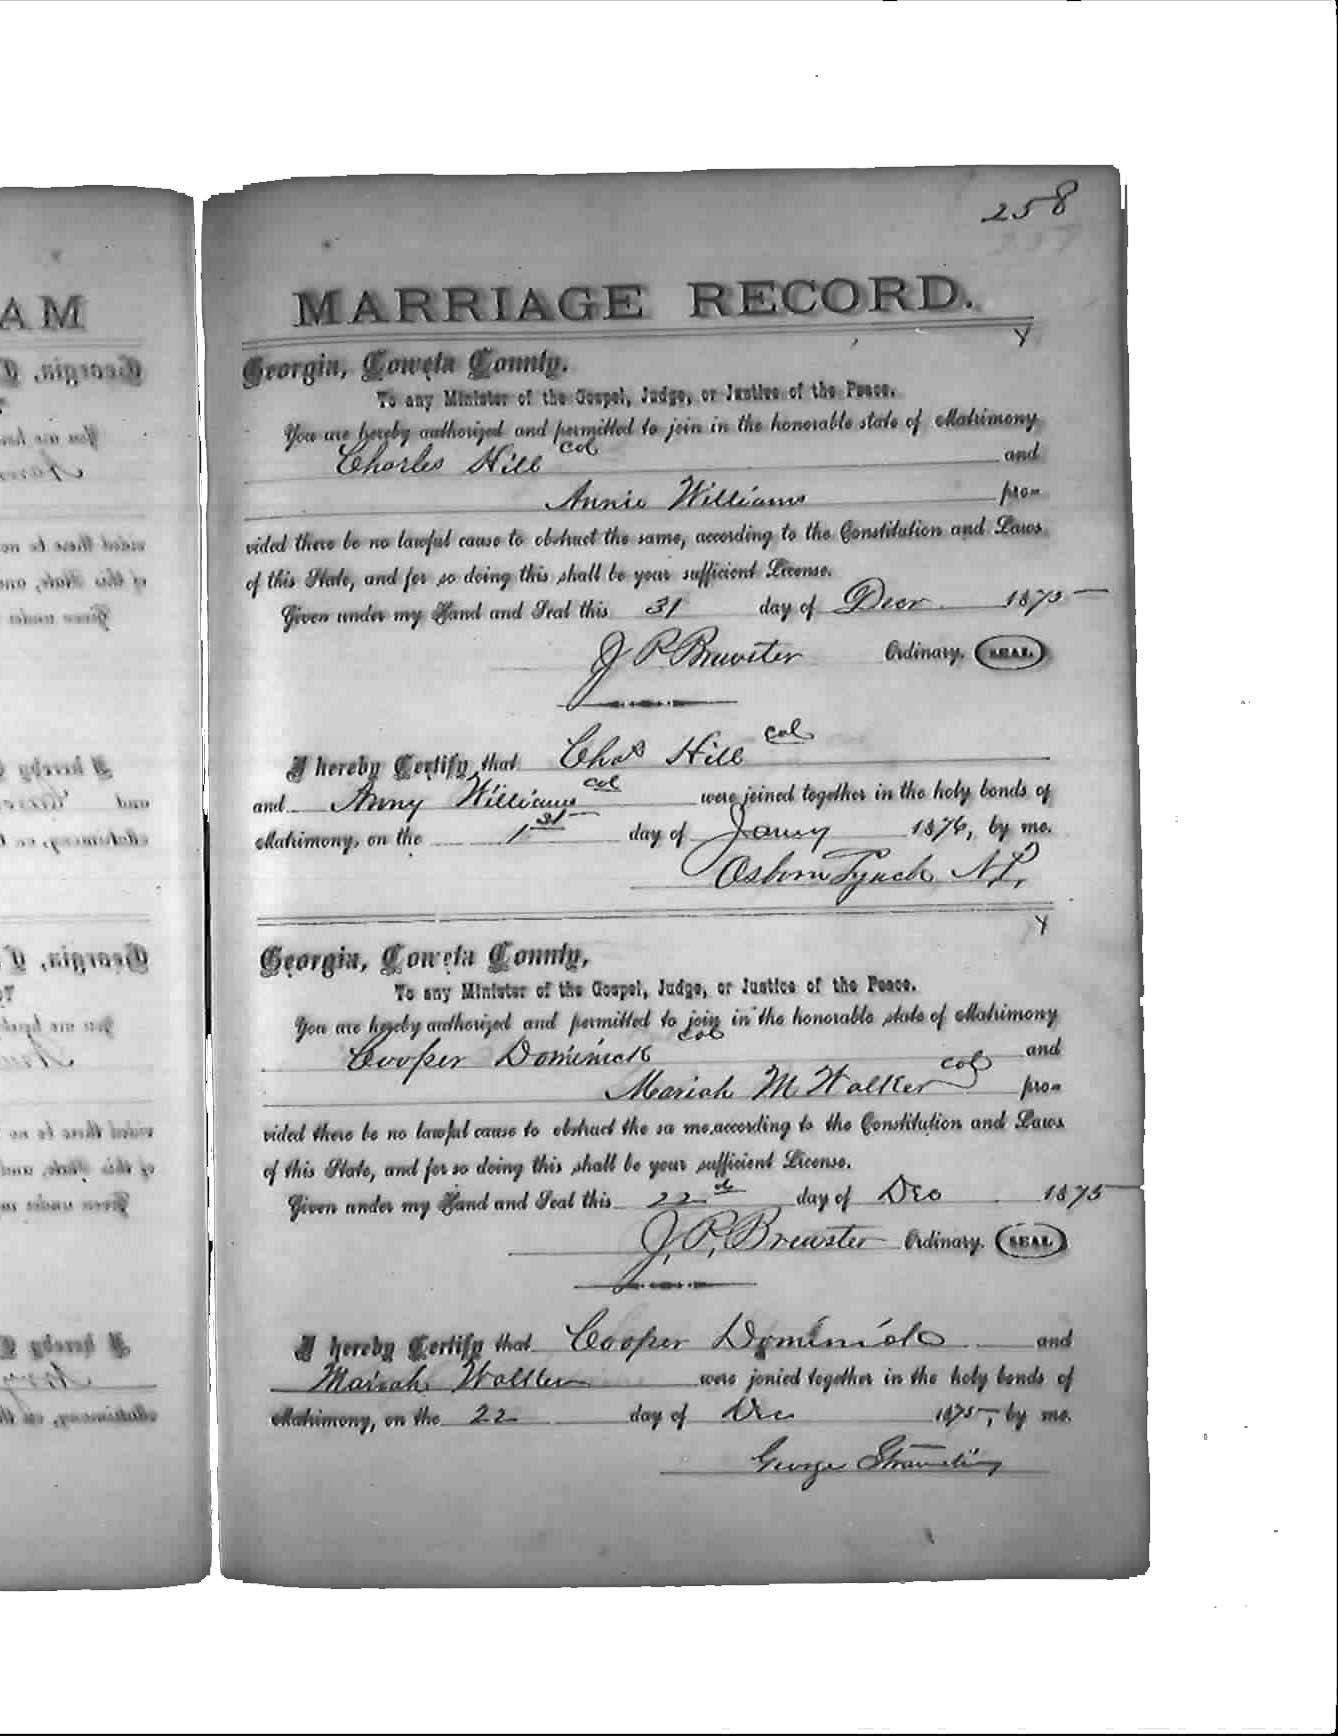 258
MARRIAGE RECORD.
Georgia, Coweta County.
To any Minister of the Gospel, Judge, or Justice of the Peace.
You are hereby authorized and permitted to join in the honorable state of Matrimony
Charles Hill col and
Annie Williams pro-
vided there be no lawful cause to obstruct the same, according to the Constitution and Laws
of this State, and for so doing this shall be your sufficient License.
Given under my Hand and Seal this 31 day of Decr 1875
J P Brewster Ordinary. SEAL
I hereby Certify that Chas Hill col
and Anny Williams col were joined together in the holy bonds of
Matrimony, on the day of Jany 1876, by me.
Osborn Lynch N.P.
Georgia, Coweta County,
To any Minister of the Gospel, Judge, or Justice of the Peace.
You are hereby authorized and permitted to join in the honorable state of Matrimony
Cooper Dominick col and
Mariah M Walker col pro-
vided there be no lawful cause to obstruct the sa me,according to the Constitution and Laws
of this State, and for so doing this shall be your sufficient License.
Given under my Hand and Seal this 22 day of Dec 1875
J. P. Brewster Ordinary. SEAL
I hereby Certify that Cooper Dominick and
Mariah Walker were jonied together in the holy bonds of
Matrimony, on the 22 day of Dec 1875, by me.
George